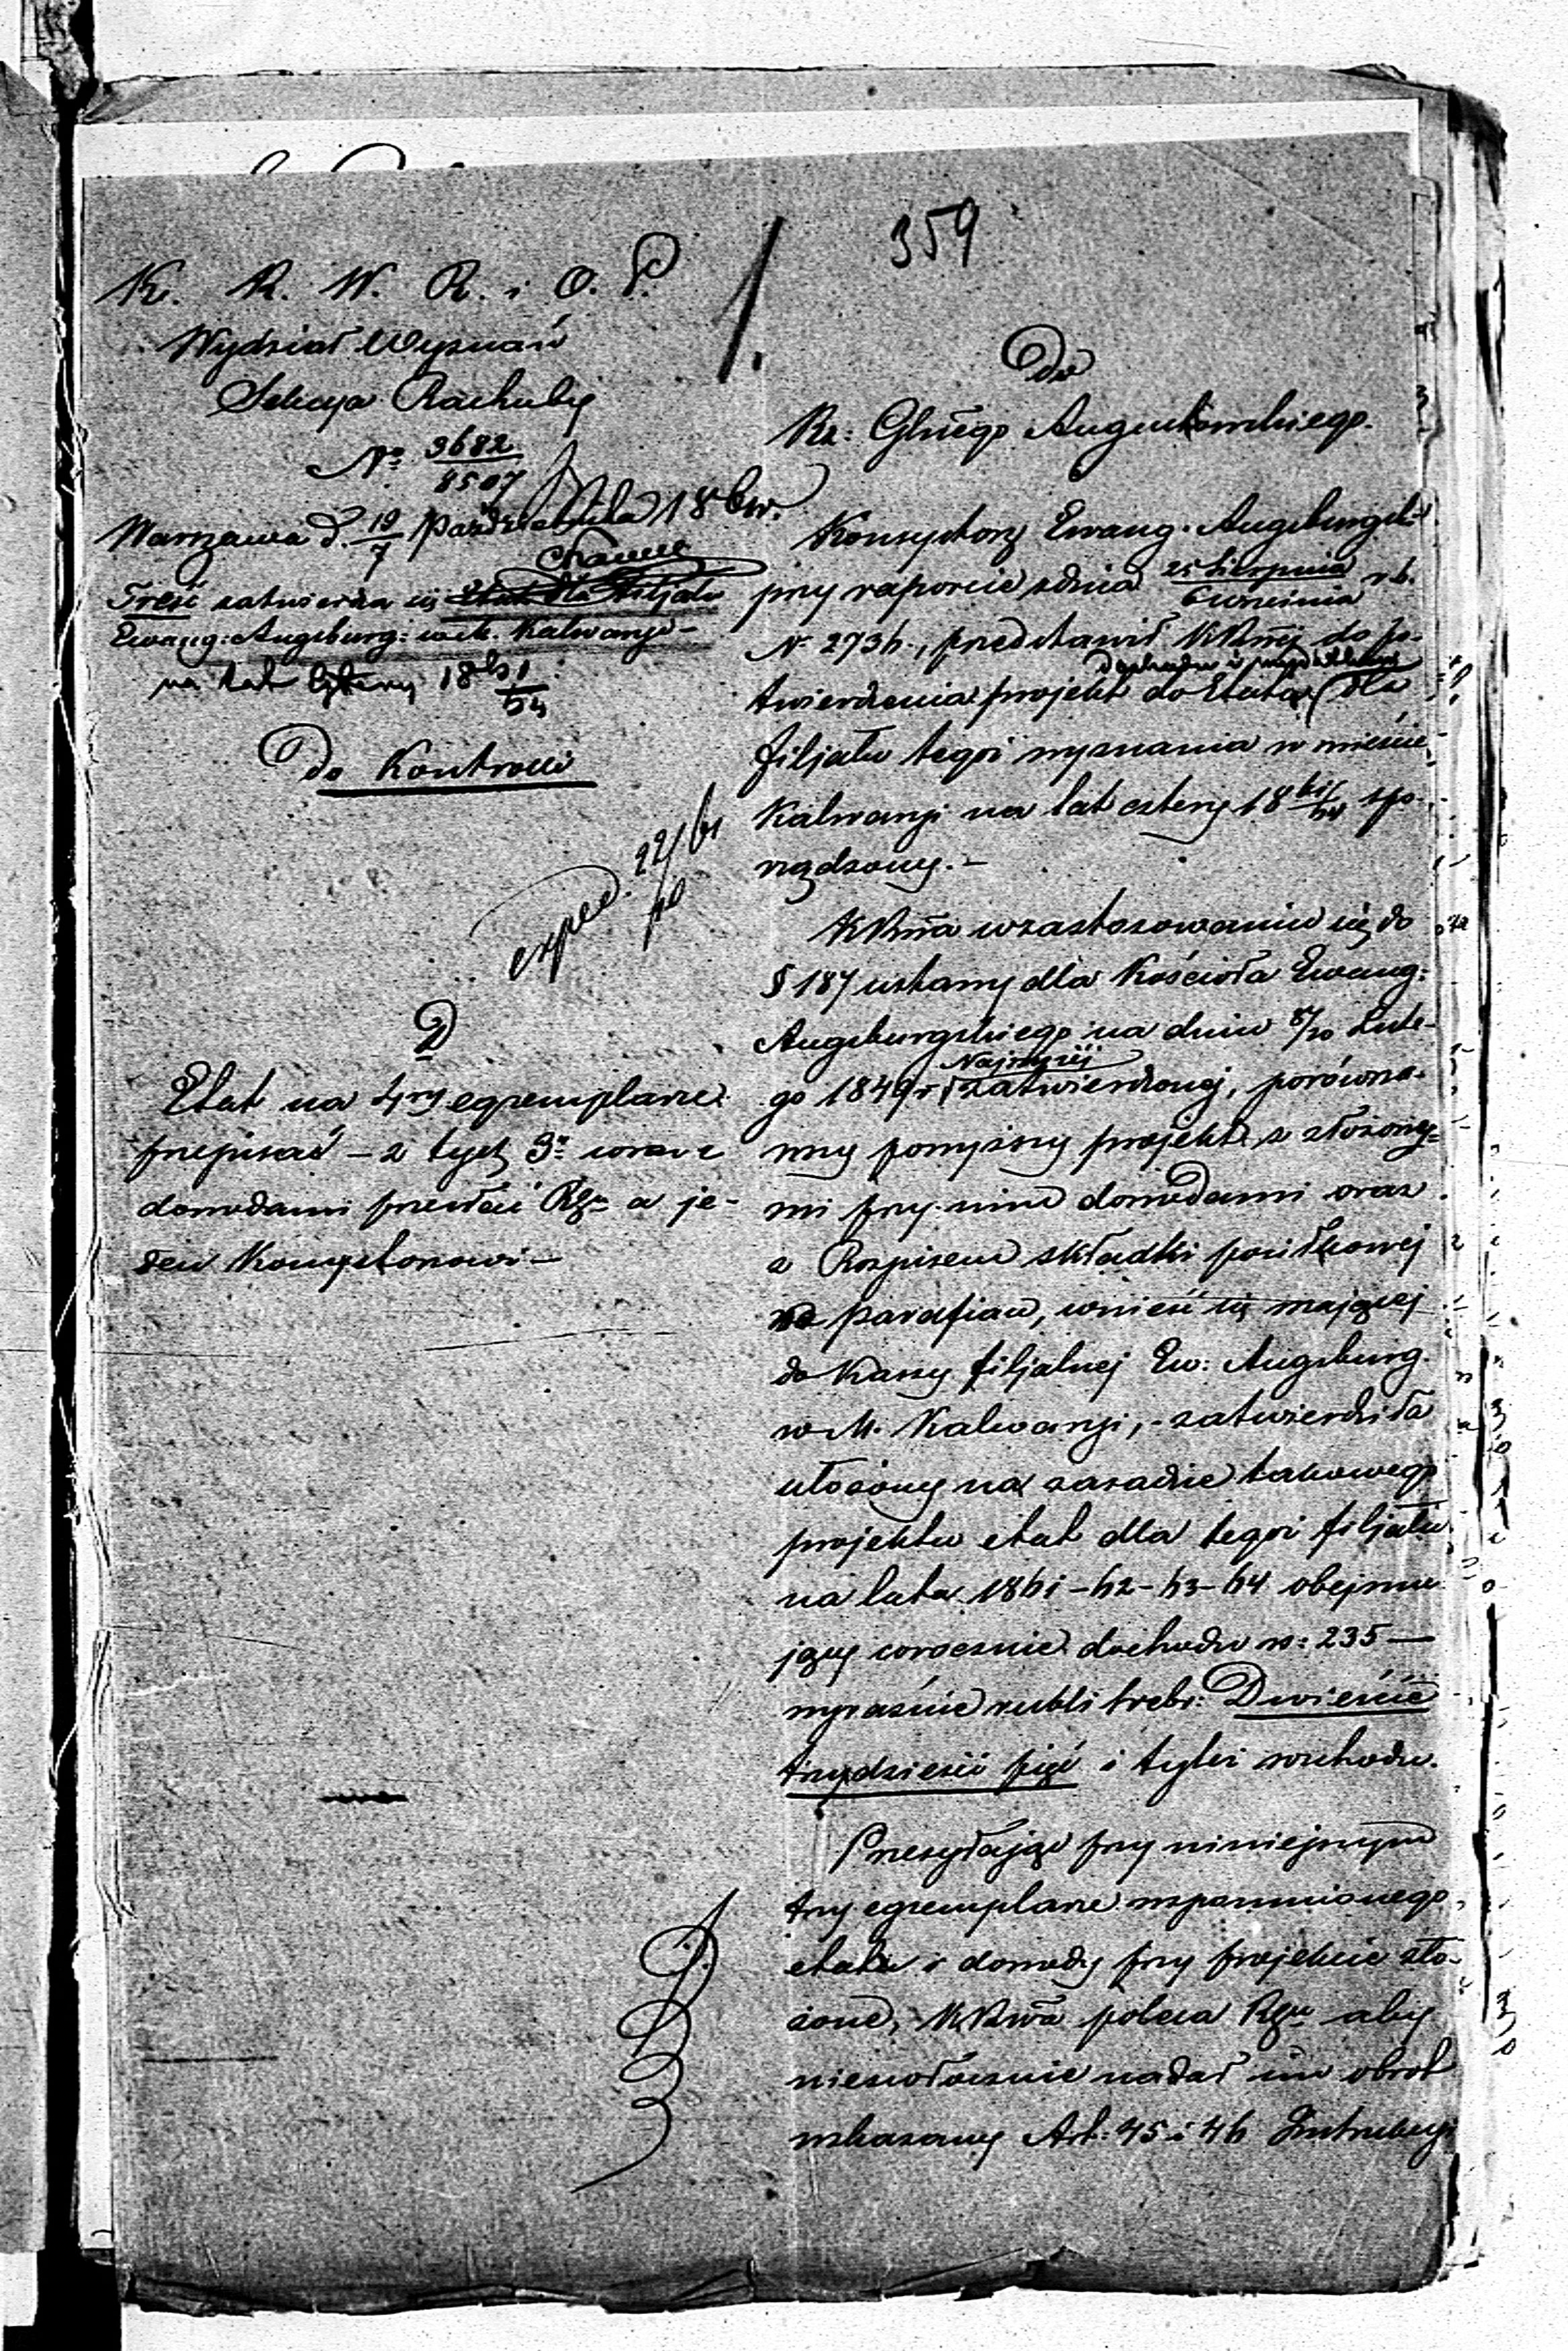 359
1.
K. R. W. R. i O. P.
Wydział Wyznań
Sekcya Rachuby
No 9682
8507
Warszawa d. 19/7 Października 186 r.
Treść zatwierdza się Etat dla Filjału
Ewang: Augsburg: w m. Kalwaryi –
na lat cztery 18 61/64
Do Kontrolli
exped. 22/61
D
Etat na 4ry egzemplarze
przepisać – z tych 3y wraz z
dowodami przesłać Rzu a je-
den Konsystorowi –
Do
Rz: Gbiego Augustowskiego.
Konsystorz Ewang. Augsburgski
przy raporcie z dnia 25 Sierpnia / 6 Września r. b.
N. 2736, przedstawił KRnej do po-
dochodu i wydatków
twierdzenia projekt do Etatu dla
filjału tegoż wyznania w mieście
Kalwaryi na lat cztery 18 61/64 spo-
rządzony. –
KRna w zastosowaniu się do
§ 187 ustawy dla Kościoła Ewang:
Augsburgskiego na dniu 8/20 Lute-
Najwyżej
go 1849 r zatwierdzonej, porówna-
wszy powyższy projekt z złożony-
mi przy nim dowodami oraz
z Rozpisem składki posiłkowej
parafian, wnieść się mającej
do Kassy filjalnej Ew: Augsburg.
w M. Kalwaryi, – zatwierdziła
ułożony na zasadzie takowego
projektu etat dla tegoż filjału
na lata 1861–62–63–64 obejmu-
jący corocznie dochodu rs: 235 —
wyraźnie rubli srebr: Dwieście
trzydzieści pięć i tyleż rozchodu.
Przesyłając przy niniejszym
trzy egzemplarze wspomnionego
etatu i dowody przy projekcie zło-
żone, KRwa poleca Rzu aby
niezwłocznie nadał im obrot
wskazany Art: 45 i 46 Instrukcyi